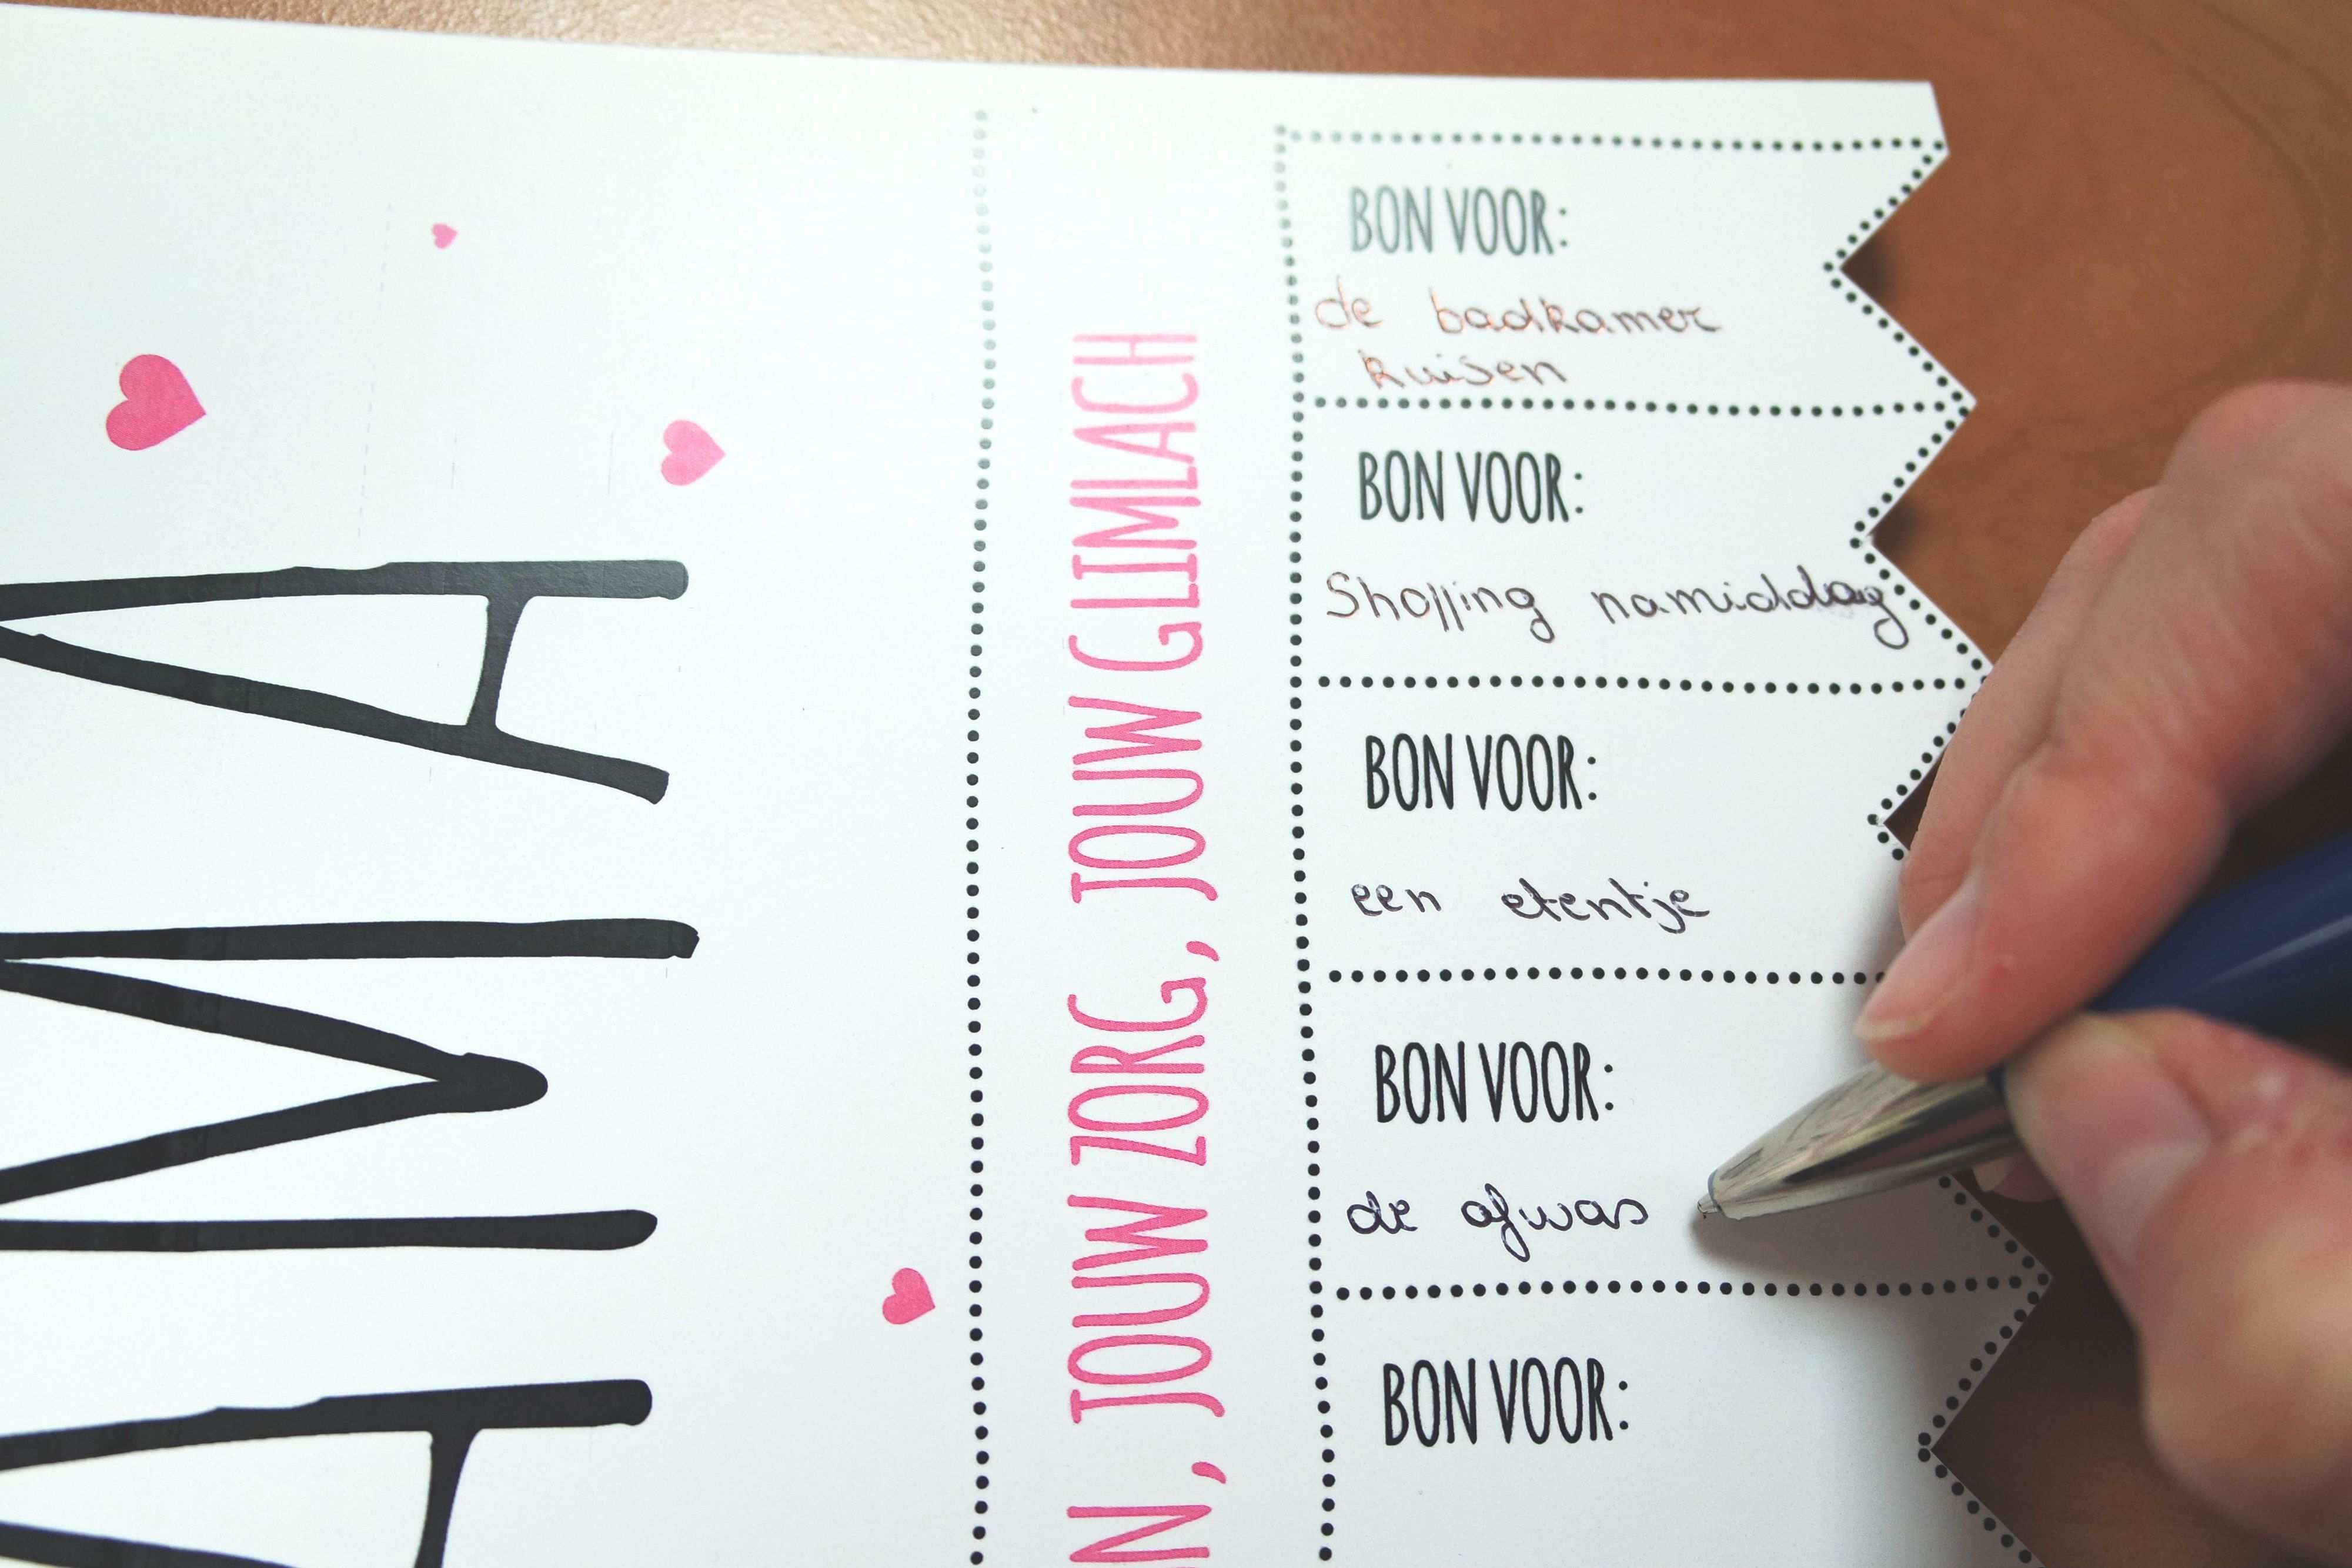 AMA
N, JOUW ZORG, JOUW GLIMLACH
BON VOOR:
de badkamer
kuisen
BON VOOR:
Shopping namiddag
BON VOOR:
een etentje
BON VOOR:
de afwas
BON VOOR: